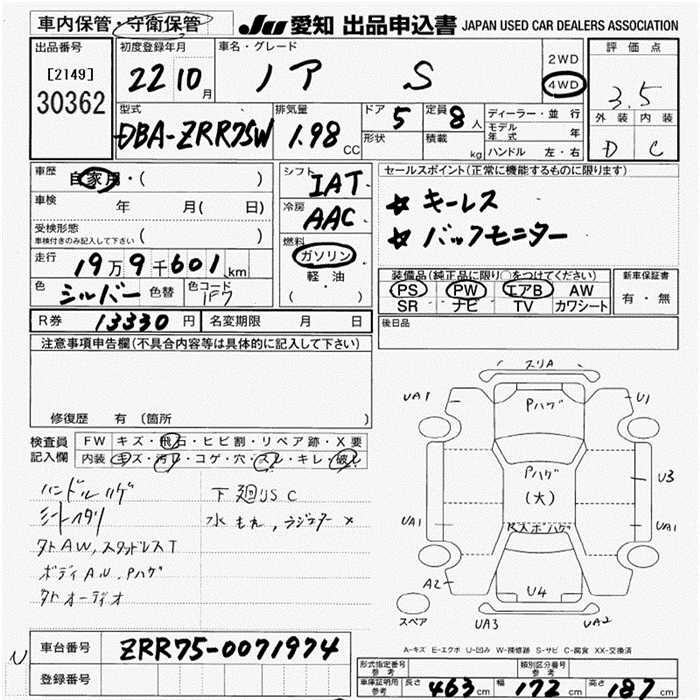 車内保管・守衛保管
JU 愛知 出品申込書 JAPAN USED CAR DEALERS ASSOCIATION
出品番号
[2149]
30362
初度登録年月
22 10月
車名・グレード
ノア S
2WD
4WD
評価点
3.5
外装 内装
D C
型式
DBA-ZRR75W
排気量
1.98 CC
ドア 5
形状
定員 8人
積載 kg
ディーラー・並行
モデル年式 年
ハンドル 左・右
車歴
自家用・( )
車検 年 月( 日)
受検形態
車検付きのみ記入して下さい ( )
走行 19万9千601km
色 シルバー 色替 色コード 1F7
シフト IAT
冷房 AAC
燃料
ガソリン
軽・油
( )
セールスポイント(正常に機能するものに限ります)
☆ キーレス
☆ バックモニター
装備品(純正品に限り○をつけてください)
PS PW エアB AW
SR ナビ TV カワシート
新車保証書
有・無
R券 13330円 名変期限 月 日
後日品
注意事項申告欄(不具合内容等は具体的に記入して下さい)
修復歴 有(箇所 )
検査員記入欄
FW キズ・飛石・ヒビ割・リペア跡・X要
内装 キズ・汚レ・コゲ・穴・スレ・キレ・破レ
ハンドルハゲ
シートヘタリ
タトAW,スタッドレスT
ボディAU,Pハゲ
タトオーディオ
下廻リSC
水もれ,ラジエター×
スリA
UA1
Pハゲ
U1
Pハゲ
(大)
U3
UA1
UA1
A2
U4
UA3
UA2
スペア
A-キズ E-エクボ U-凹み W-補修跡 S-サビ C-腐食 XX-交換済
N
車台番号 ZRR75-0071974
登録番号
形式指定番号参考
類別区分番号参考
車庫証明用参考 長さ 463cm 幅 172cm 高さ 187cm